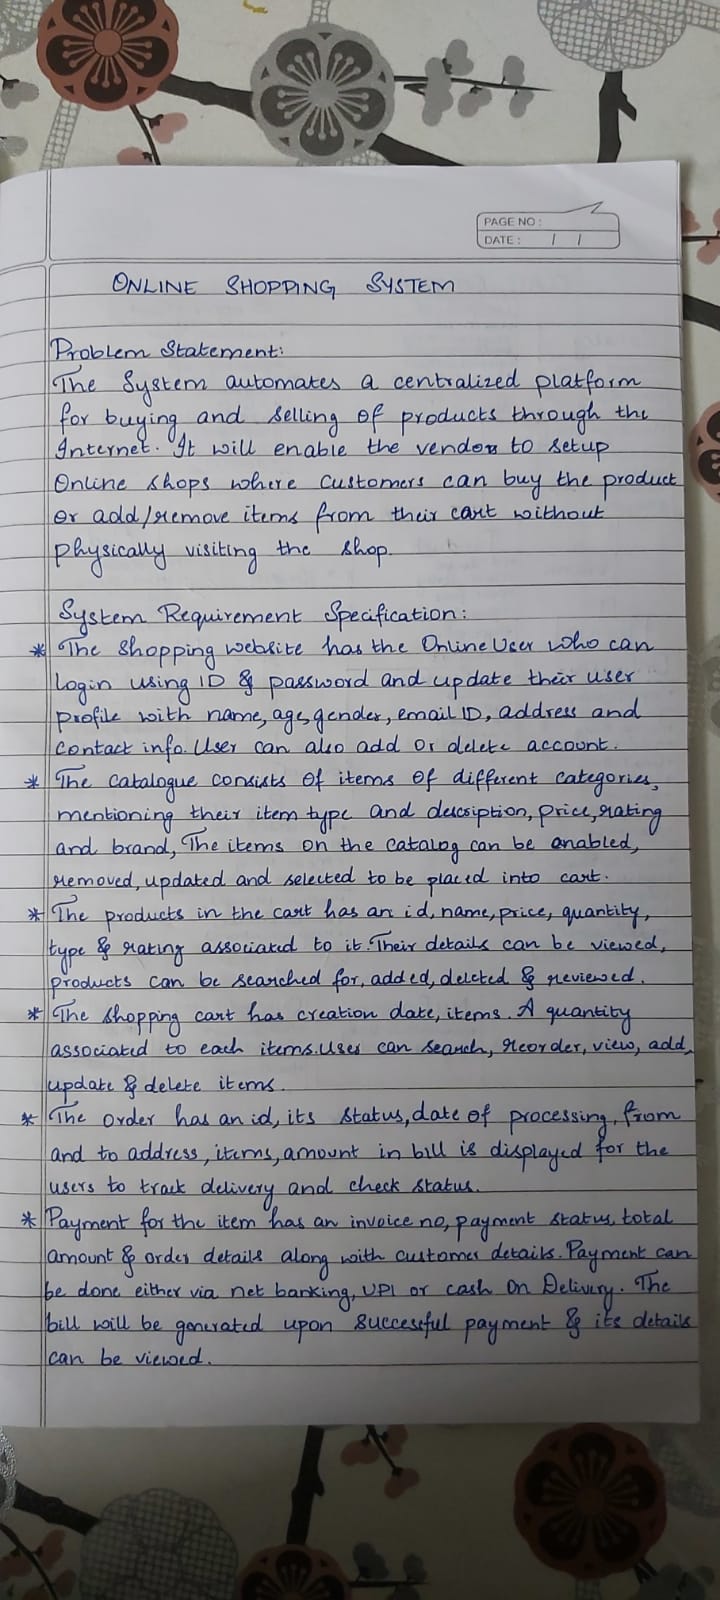 PAGE NO :
DATE : / /
ONLINE SHOPPING SYSTEM
Problem Statement:
The System automates a centralized platform
for buying and selling of products through the
Internet. It will enable the vendors to setup
Online shops where customers can buy the product
or add/remove items from their cart without
physically visiting the shop.
System Requirement Specification:
* The shopping website has the Online User who can
login using ID & password and update their user
profile with name, age, gender, email ID, address and
contact info. User can also add or delete account.
* The catalogue consists of items of different categories,
mentioning their item type and description, price, rating
and brand, The items on the catalog can be enabled,
removed, updated and selected to be placed into cart.
* The products in the cart has an id, name, price, quantity,
type & rating associated to it. Their details can be viewed,
products can be searched for, added, deleted & reviewed.
* The shopping cart has creation date, items. A quantity
associated to each items. User can search, reorder, view, add,
update & delete items.
* The order has an id, its status, date of processing, from
and to address, items, amount in bill is displayed for the
users to track delivery and check status.
* Payment for the item has an invoice no, payment status, total
amount & order details along with customer details. Payment can
be done either via net banking, UPI or cash On Delivery. The
bill will be generated upon successful payment & its details
can be viewed.